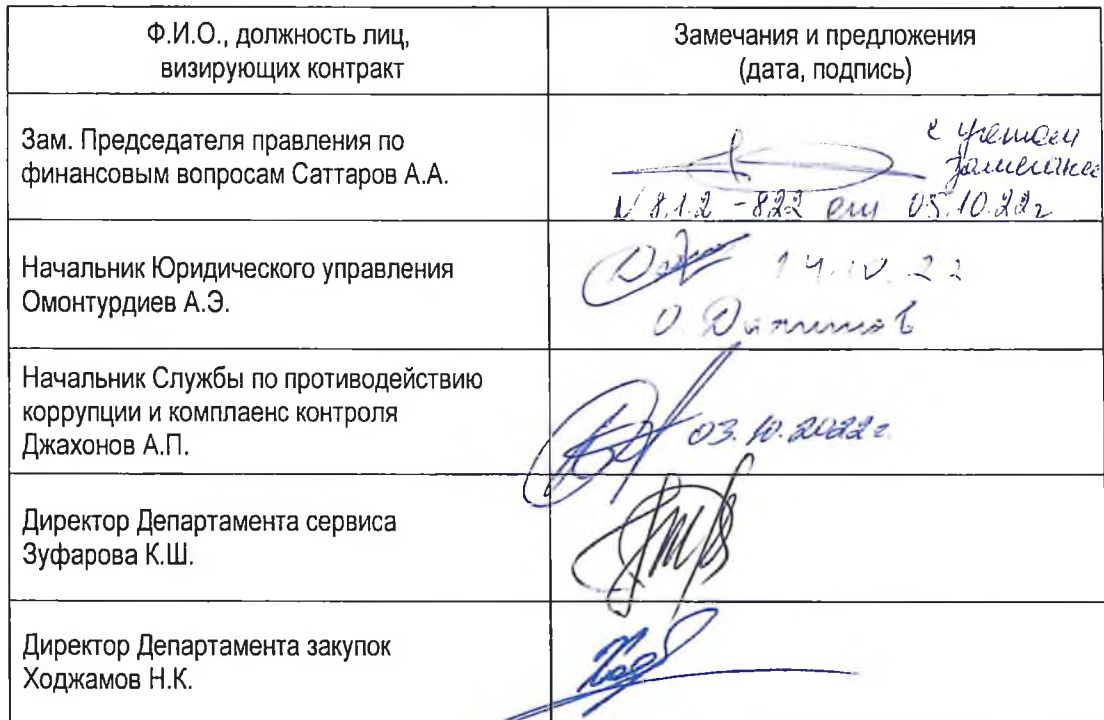 Ф.И.О., должность лиц,
визирующих контракт
Замечания и предложения
(дата, подпись)
Зам. Председателя правления по
финансовым вопросам Саттаров А.А.
с учетом
замечаний
№ 8.1.2 -822 от 05.10.22г
Начальник Юридического управления
Омонтурдиев А.Э.
14.10.22
О.
Начальник Службы по противодействию
коррупции и комплаенс контроля
Джахонов А.П.
03.10.2022г.
Директор Департамента сервиса
Зуфарова К.Ш.
Директор Департамента закупок
Ходжамов Н.К.